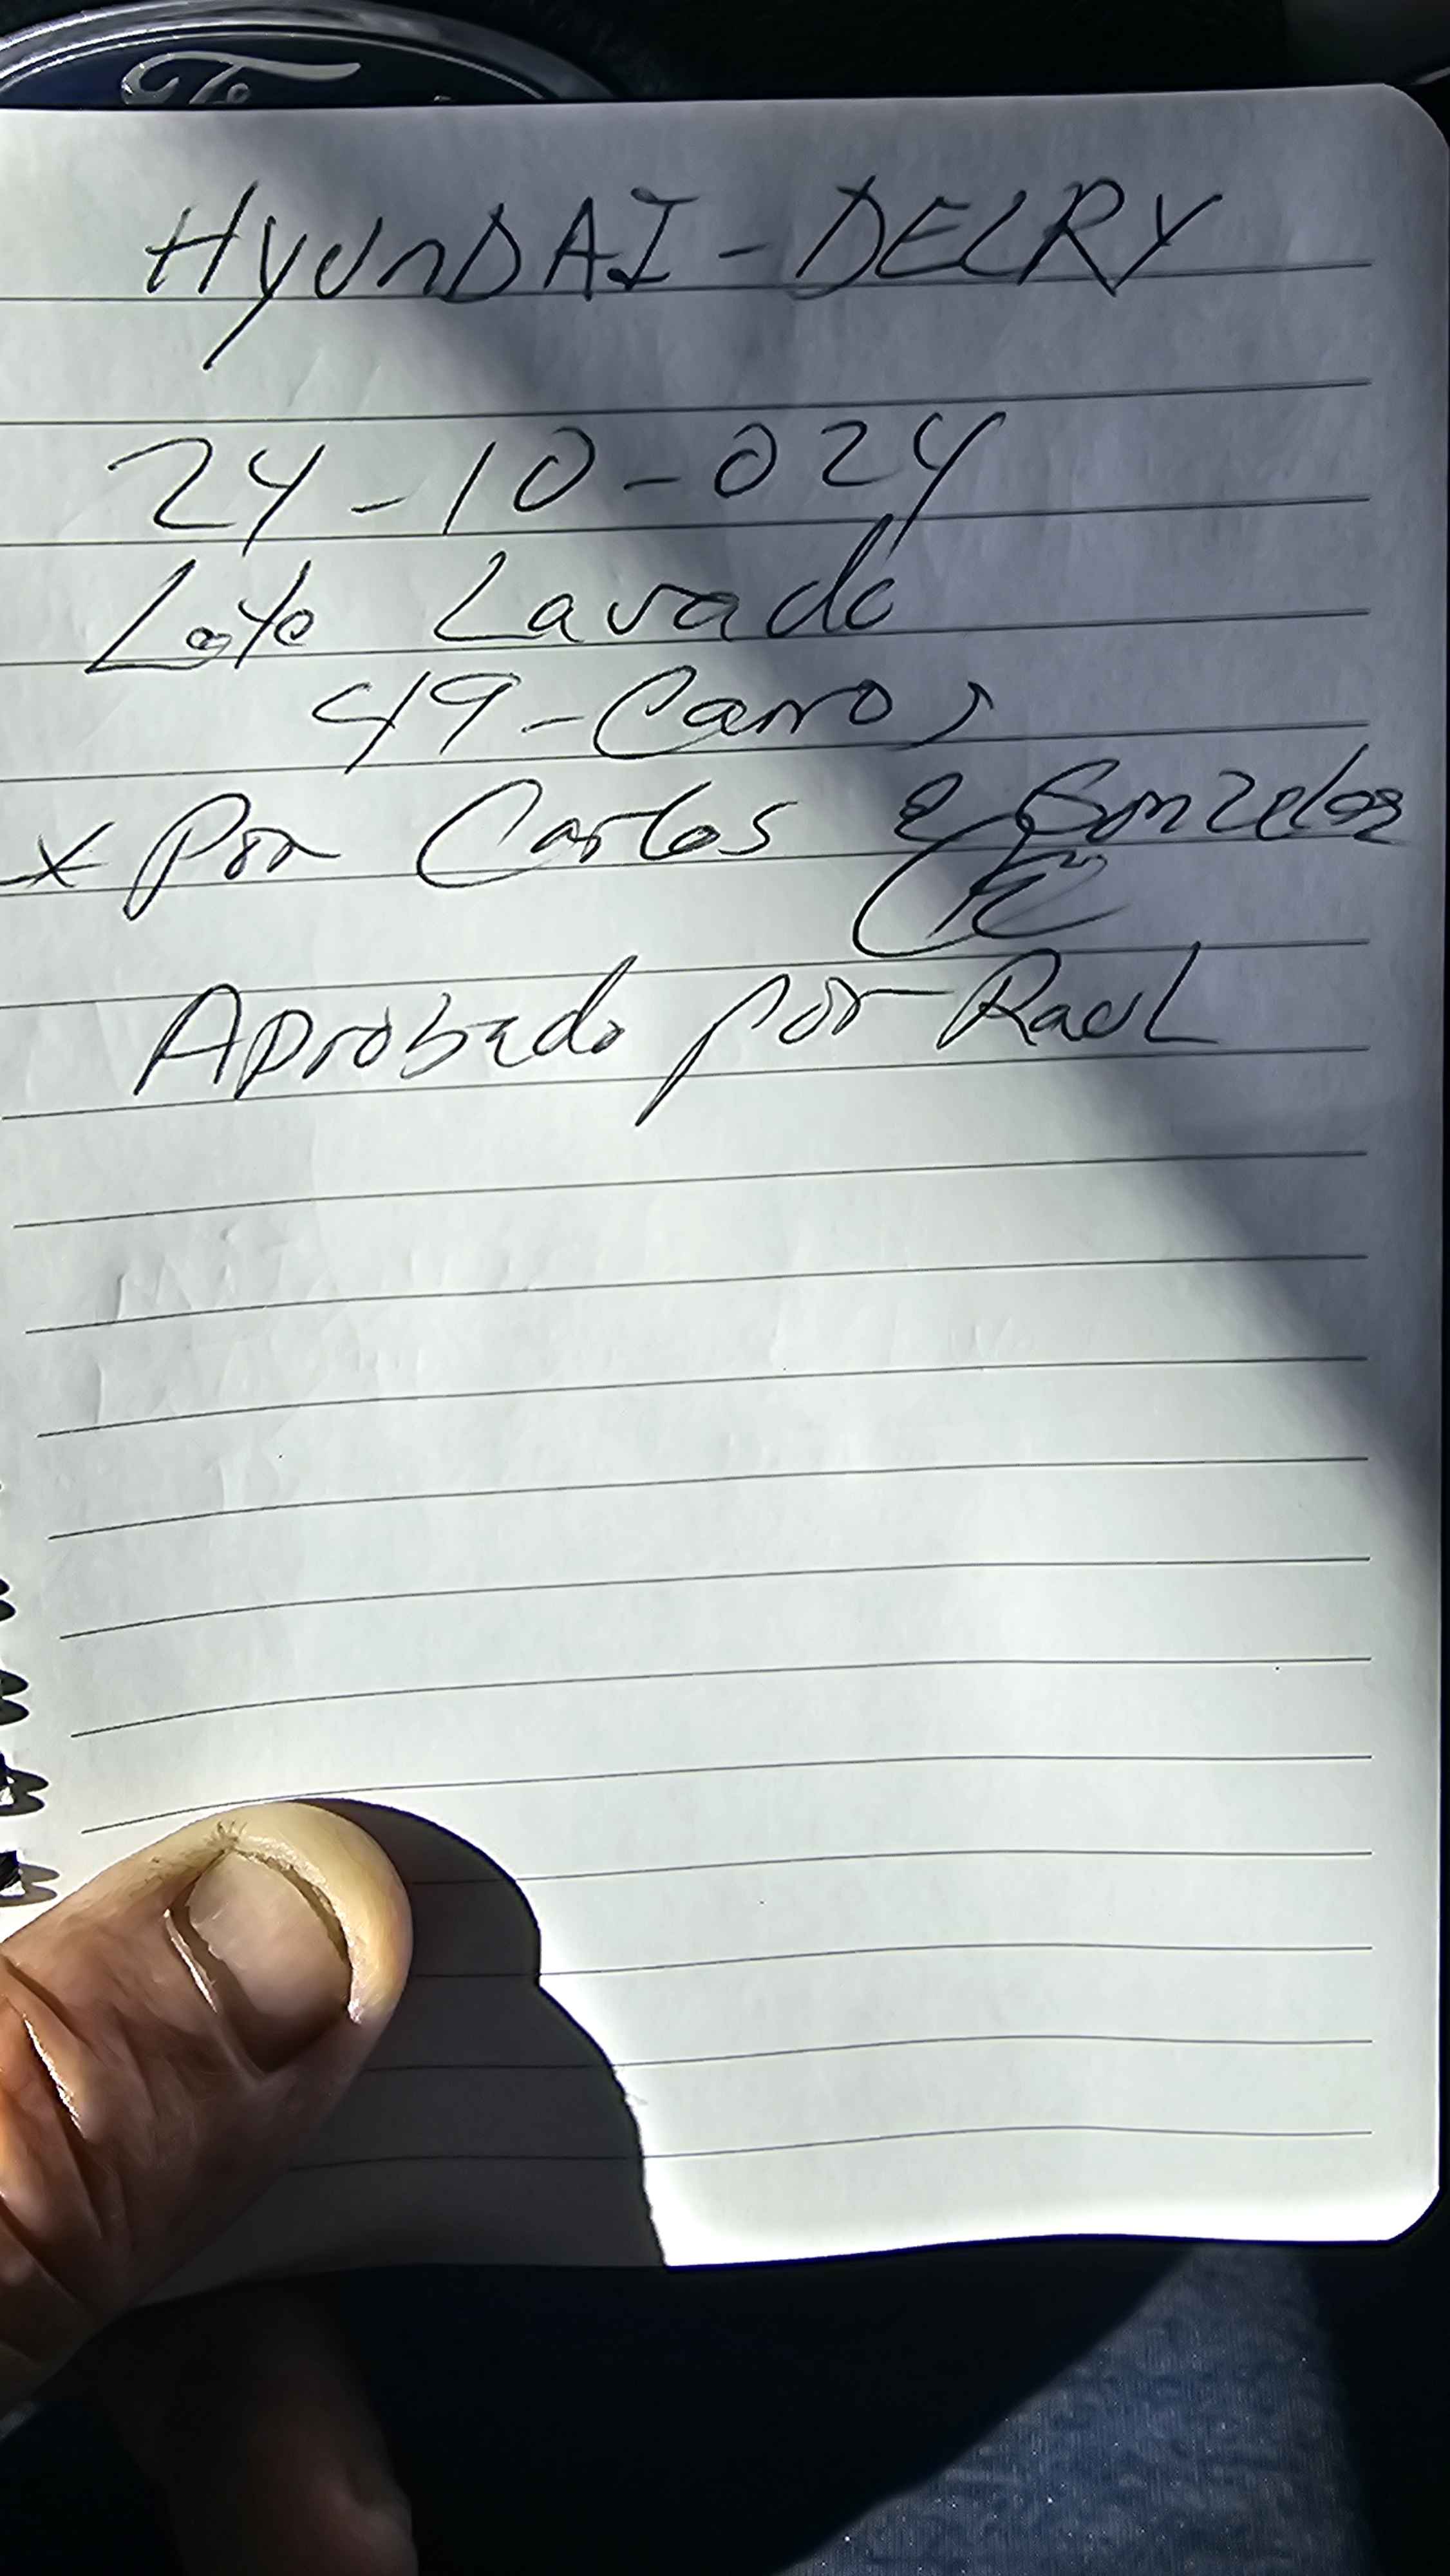 HYUnDAI - DELRY
24-10-024
Lote Lavado
49-Carros
x Por Carlos e Gonzalez
Aprobado por Raul